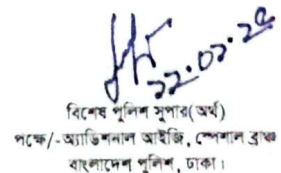 ২২.০২.২০
বিশেষ পুলিশ সুপার(অর্থ)
পক্ষে/-অ্যাডিশনাল আইজি, স্পেশাল ব্রাঞ্চ
বাংলাদেশ পুলিশ, ঢাকা।